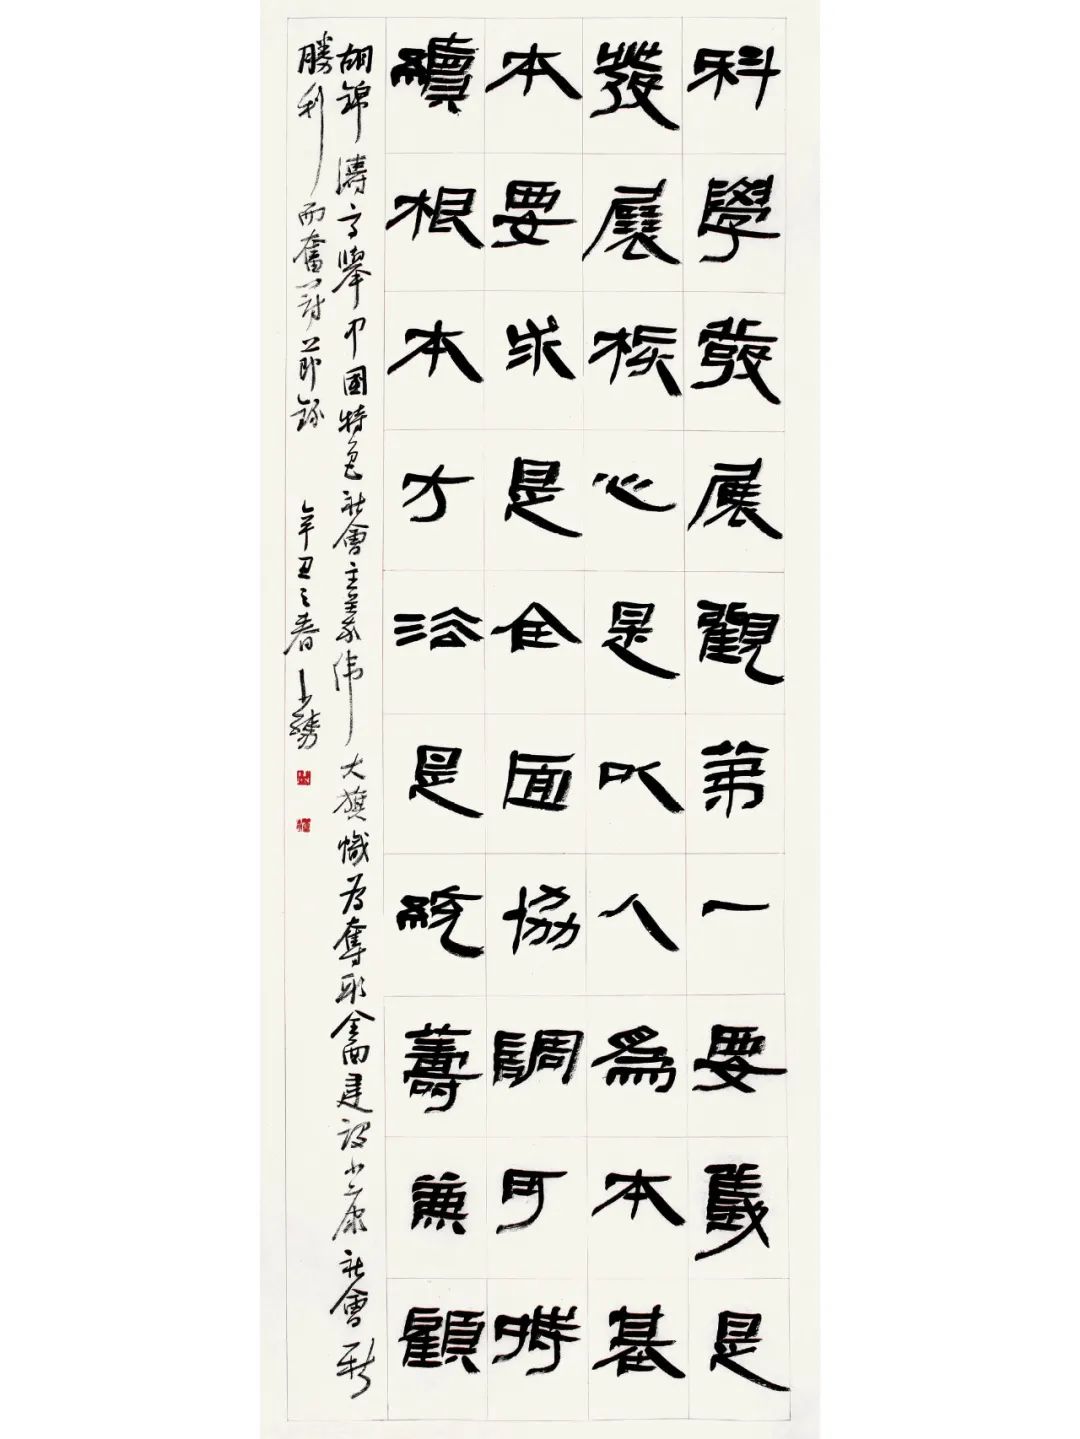 科學發展觀第一要義是
發展核心是以人為本基
本要求是全面協調可持
續根本方法是統籌兼顧
胡錦濤高舉中國特色社會主義伟大旗幟為奪取全面建設小康社會新
勝利而奮鬥節錄 辛丑之春